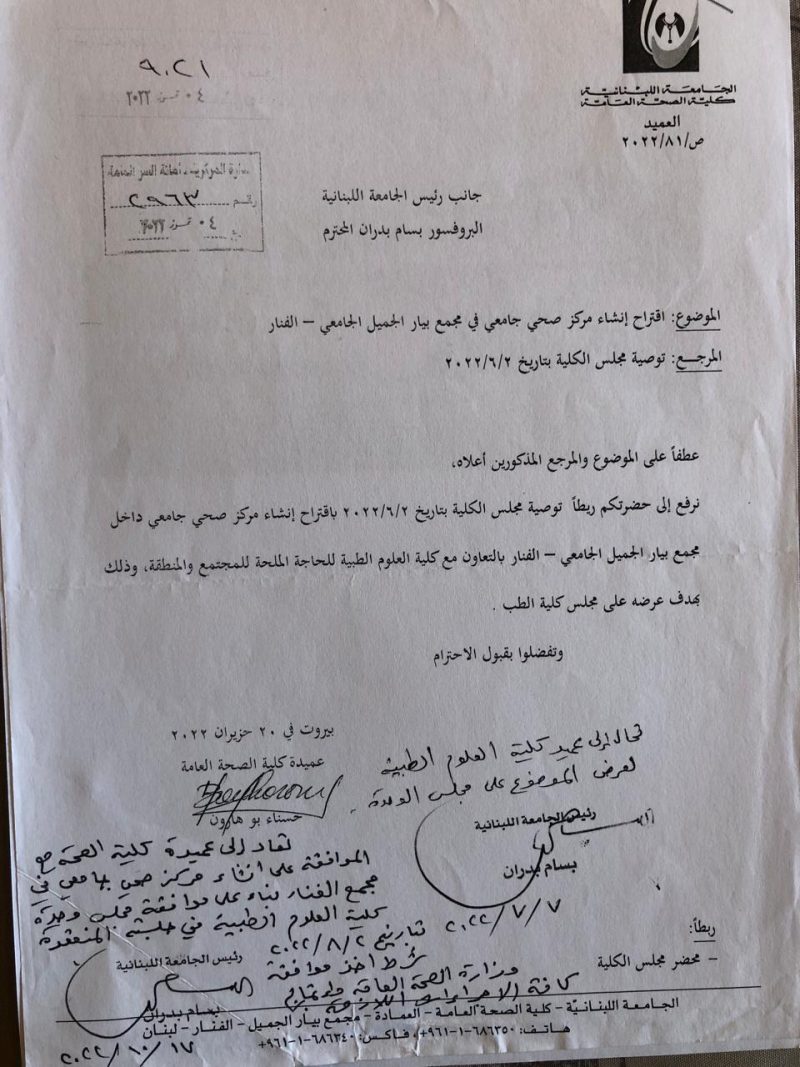 الجامعة اللبنانية
كلية الصحة العامة
العميد
ص/٨١/٢٠٢٢
٩٠٢١
٠٤ تموز ٢٠٢٢
رقم ٢٩٦٣
٠٤ تموز ٢٠٢٢
جانب رئيس الجامعة اللبنانية
البروفسور بسام بدران المحترم
الموضوع: اقتراح إنشاء مركز صحي جامعي في مجمع بيار الجميل الجامعي – الفنار
المرجع: توصية مجلس الكلية بتاريخ ٢٠٢٢/٦/٢
عطفاً على الموضوع والمرجع المذكورين أعلاه،
نرفع إلى حضرتكم ربطاً توصية مجلس الكلية بتاريخ ٢٠٢٢/٦/٢ باقتراح إنشاء مركز صحي جامعي داخل
مجمع بيار الجميل الجامعي – الفنار بالتعاون مع كلية العلوم الطبية للحاجة الملحة للمجتمع والمنطقة، وذلك
بهدف عرضه على مجلس كلية الطب .
وتفضلوا بقبول الاحترام
بيروت في ٢٠ حزيران ٢٠٢٢
عميدة كلية الصحة العامة
حسناء بو هارون
تحال إلى عميد كلية العلوم الطبية
لعرض الموضوع على مجلس الوحدة.
رئيس الجامعة اللبنانية
بسام بدران
٢٠٢٢/٧/٧
تعاد إلى عميدة كلية الصحة مع
الموافقة على انشاء مركز صحي جامعي في
مجمع الفنار بناء على موافقة مجلس وحدة
كلية العلوم الطبية في جلسته المنعقدة
بتاريخ ٢٠٢٢/٨/٢
شرط اخذ موافقة
وزارة الصحة العامة واتباع
كافة الاجراءات اللازمة
رئيس الجامعة اللبنانية
بسام بدران
٢٠٢٢/١٠/١٧
ربطاً:
– محضر مجلس الكلية
الجامعة اللبنانية – كلية الصحة العامة – العمادة – مجمع بيار الجميل – الفنار – لبنان
هاتف: ٦٨٦٣٥٠-١-٩٦١+ ، فاكس: ٦٨٦٣٤٠-١-٩٦١+